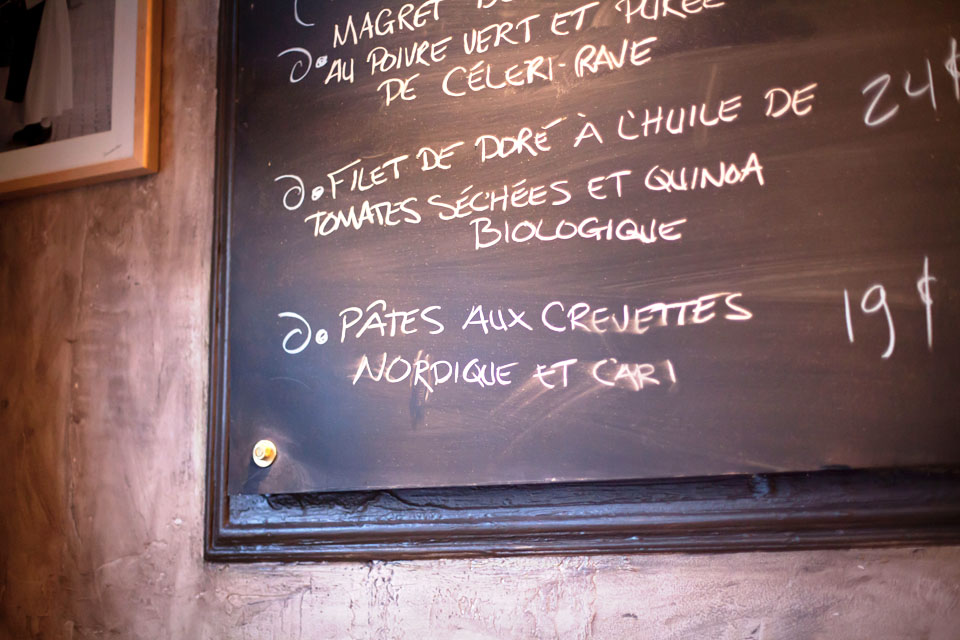 MAGRET
AU POIVRE VERT ET PURÉE
DE CÉLERI-RAVE
FILET DE DORÉ À L'HUILE DE 24$
TOMATES SÉCHÉES ET QUINOA
BIOLOGIQUE
PÂTES AUX CREVETTES 19$
NORDIQUE ET CARI